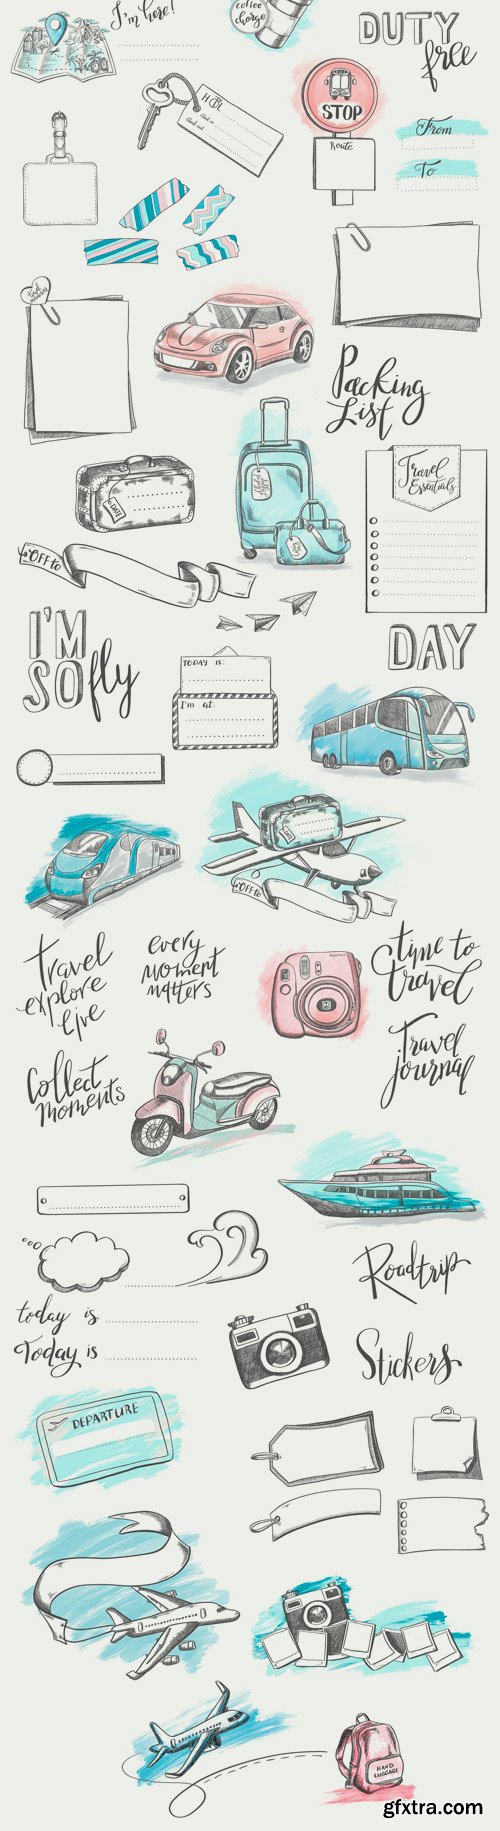 I'm here!
coffee
charge
DUTY
free
STOP
Route
From
To
Packing
List
Travel
Essentials
OFF to
I'M
SO fly
DAY
TODAY IS:
I'm at:
OFF to
Travel
explore
live
every
moment
matters
time to
travel
Travel
journal
Collect
moments
Roadtrip
today is
Today is
Stickers
DEPARTURE
HAND
LUGGAGE
gfxtra.com